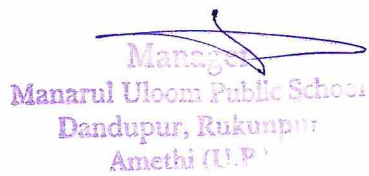 Manager
Manarul Uloom Public School
Dandupur, Rukunpur
Amethi (U.P.)